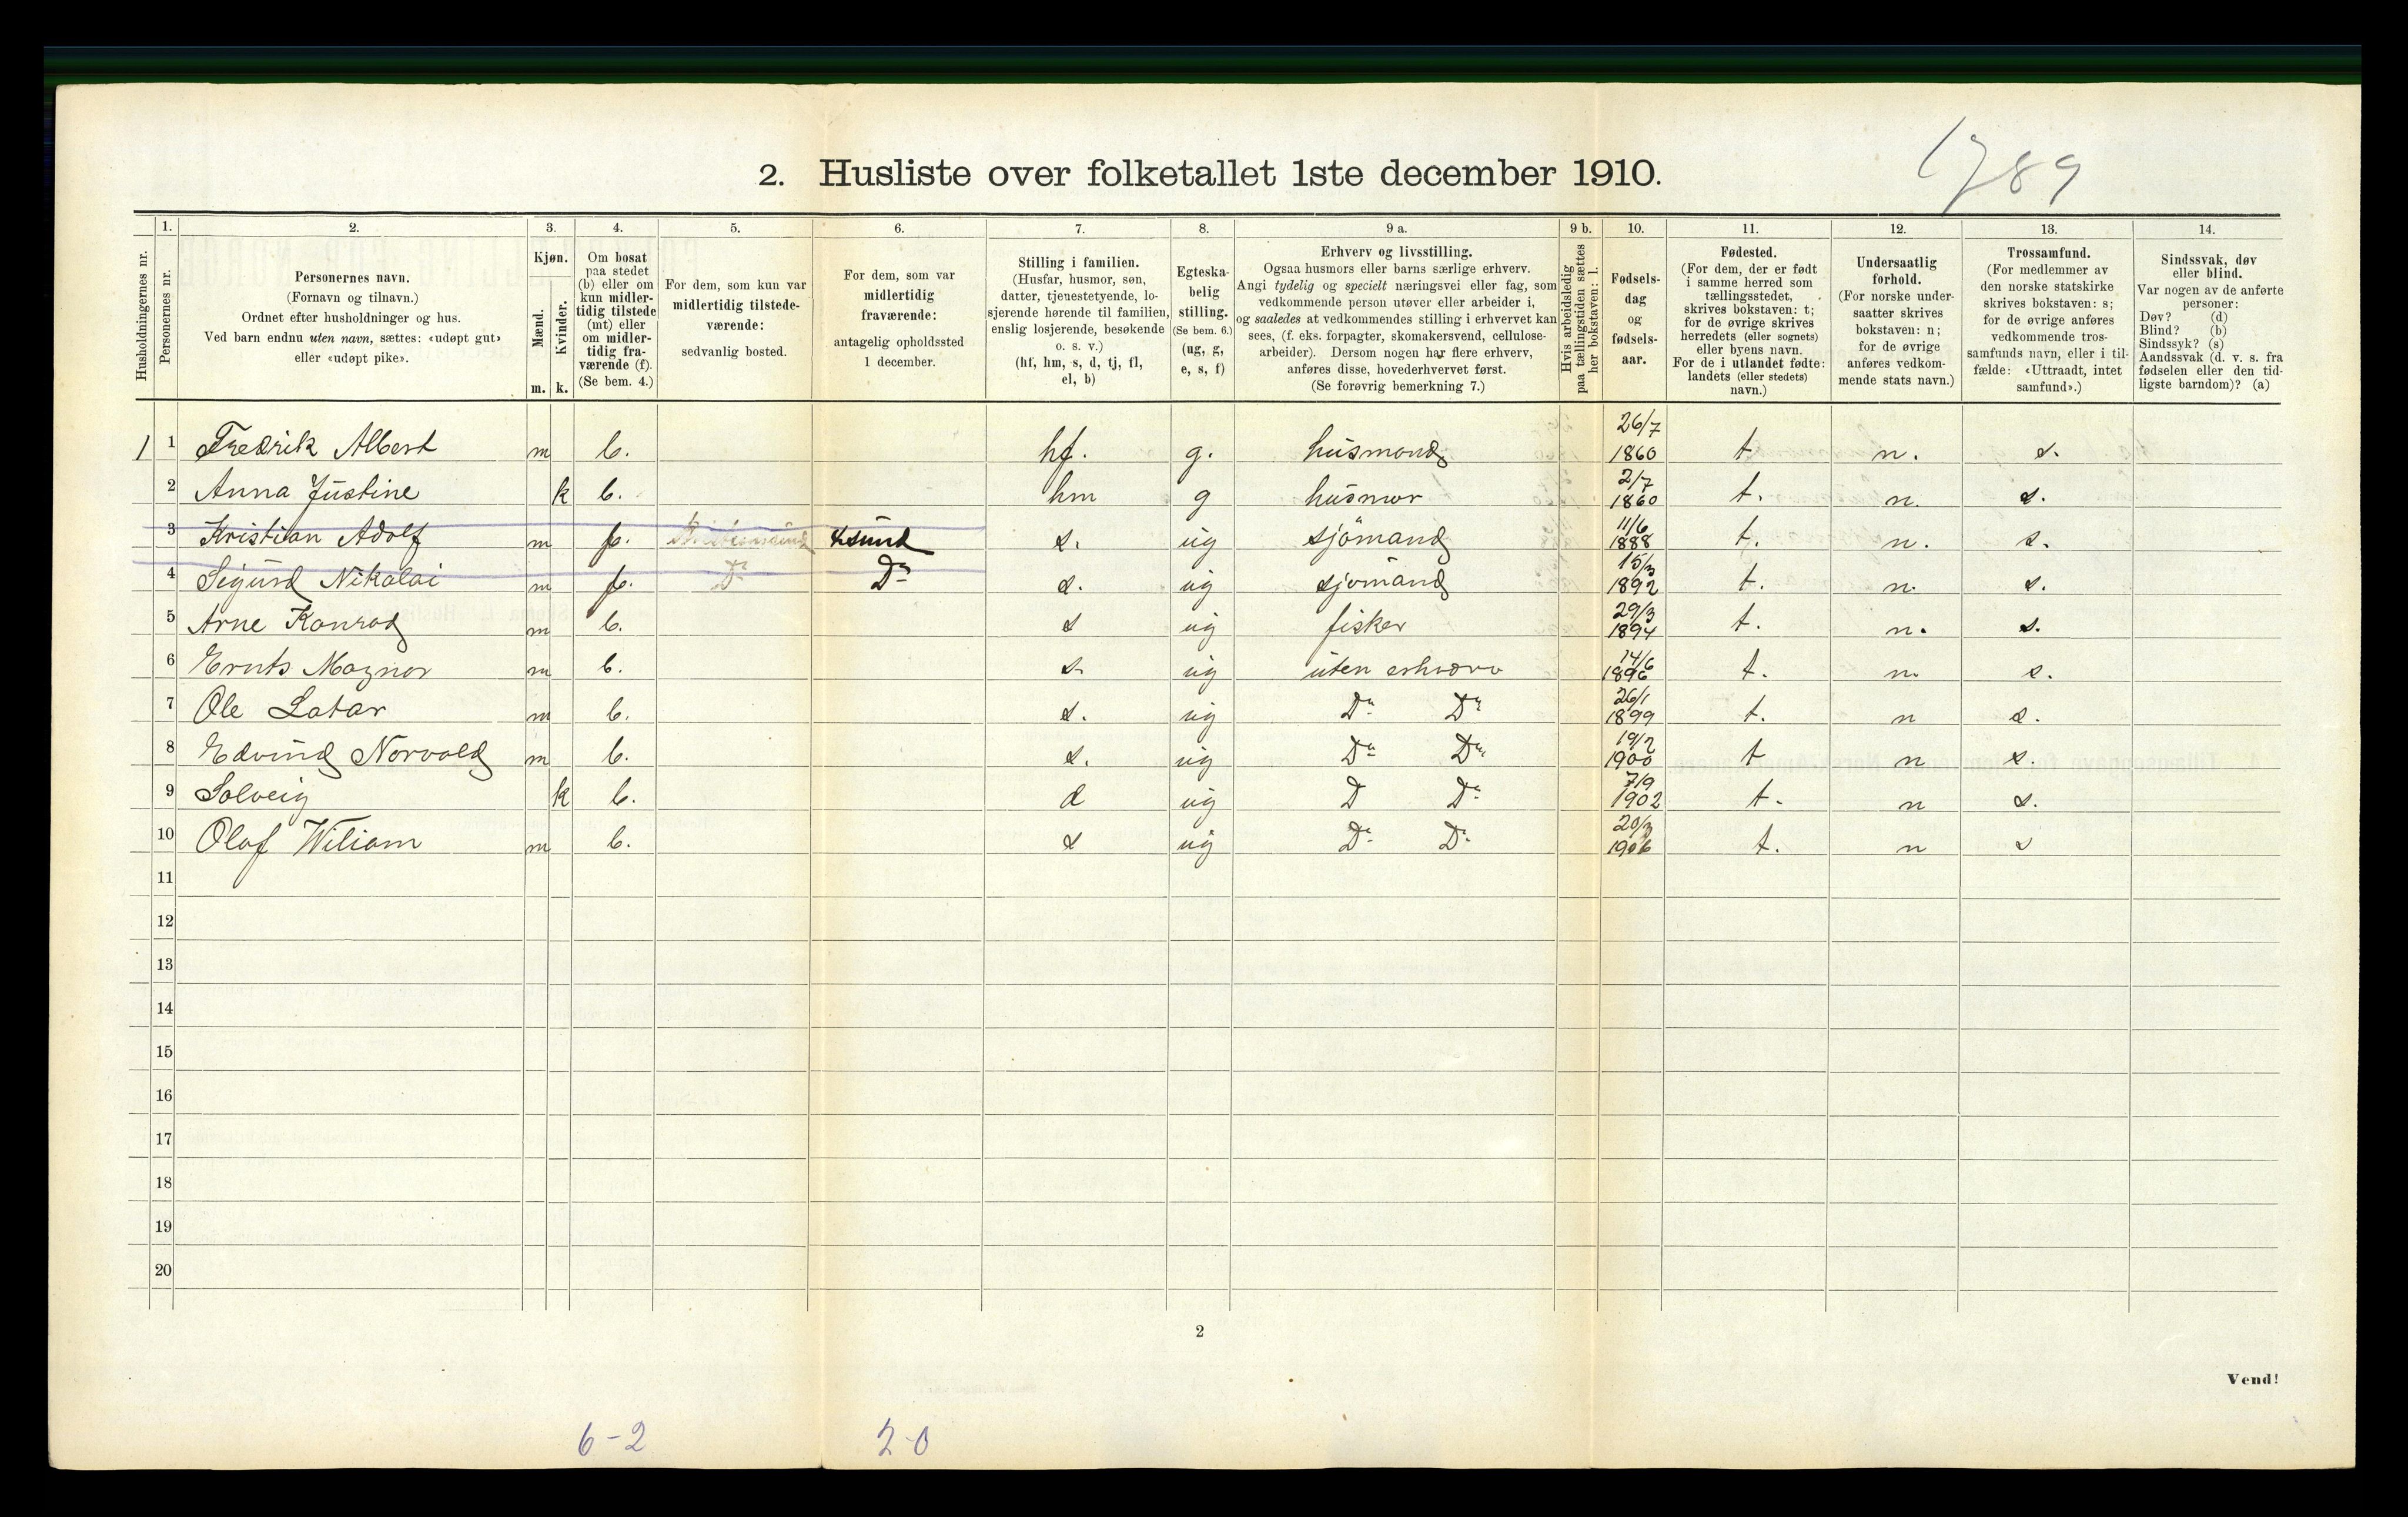 1789
2. Husliste over folketallet 1ste december 1910.
Husholdningernes nr.
1. Personernes nr.
2. Personernes navn. (Fornavn og tilnavn.) Ordnet efter husholdninger og hus. Ved barn endnu uten navn, sættes: «udøpt gut» eller «udøpt pike».
3. Kjøn. Mænd. m. Kvinder. k.
4. Om bosat paa stedet (b) eller om kun midlertidig tilstede (mt) eller om midlertidig fraværende (f). (Se bem. 4.)
5. For dem, som kun var midlertidig tilstedeværende: sedvanlig bosted.
6. For dem, som var midlertidig fraværende: antagelig opholdssted 1 december.
7. Stilling i familien. (Husfar, husmor, søn, datter, tjenestetyende, losjerende hørende til familien, enslig losjerende, besøkende o. s. v.) (hf, hm, s, d, tj, fl, el, b)
8. Egteskabelig stilling. (Se bem. 6.) (ug, g, e, s, f)
9 a. Erhverv og livsstilling. Ogsaa husmors eller barns særlige erhverv. Angi tydelig og specielt næringsvei eller fag, som vedkommende person utøver eller arbeider i, og saaledes at vedkommendes stilling i erhvervet kan sees, (f. eks. forpagter, skomakersvend, cellulosearbeider). Dersom nogen har flere erhverv, anføres disse, hovederhvervet først. (Se forøvrig bemerkning 7.)
9 b. Hvis arbeidsledig paa tællingstiden sættes her bokstaven: l.
10. Fødselsdag og fødselsaar.
11. Fødested. (For dem, der er født i samme herred som tællingsstedet, skrives bokstaven: t; for de øvrige skrives herredets (eller sognets) eller byens navn. For de i utlandet fødte: landets (eller stedets) navn.)
12. Undersaatlig forhold. (For norske undersaatter skrives bokstaven: n; for de øvrige anføres vedkommende stats navn.)
13. Trossamfund. (For medlemmer av den norske statskirke skrives bokstaven: s; for de øvrige anføres vedkommende trossamfunds navn, eller i tilfælde: «Uttraadt, intet samfund».)
14. Sindssvak, døv eller blind. Var nogen av de anførte personer: Døv? (d) Blind? (b) Sindssyk? (s) Aandssvak (d. v. s. fra fødselen eller den tidligste barndom)? (a)
1 1 Fredrik Albert m b. hf. g. husmand 26/7 1860 t n. s.
2 Anna Justine k b. hm g husmor 2/7 1860 t. n. s.
3 Kristian Adolf m f. Kristiansund Ksund s. ug sjömand 11/6 1888 t. n. s.
4 Sigurd Nikolai m f. Do Do s. ug sjömand 15/3 1892 t. n. s.
5 Arne Konrad m b. s ug fisker 29/3 1894 t. n. s.
6 Ernts Magnor m b. s. ug uten erhværv 14/6 1896 t. n. s.
7 Ole Latar m b. s. ug Do Do 26/1 1899 t. n s.
8 Edvind Norvald m b. s. ug Do Do 19/2 1900 t n s.
9 Solveig k b. d ug D Do 7/9 1902 t. n s.
10 Olaf Wiliam m b. s ug Do Do 20/3 1906 t. n s
11
12
13
14
15
16
17
18
19
20
2
Vend!
6-2 2-0